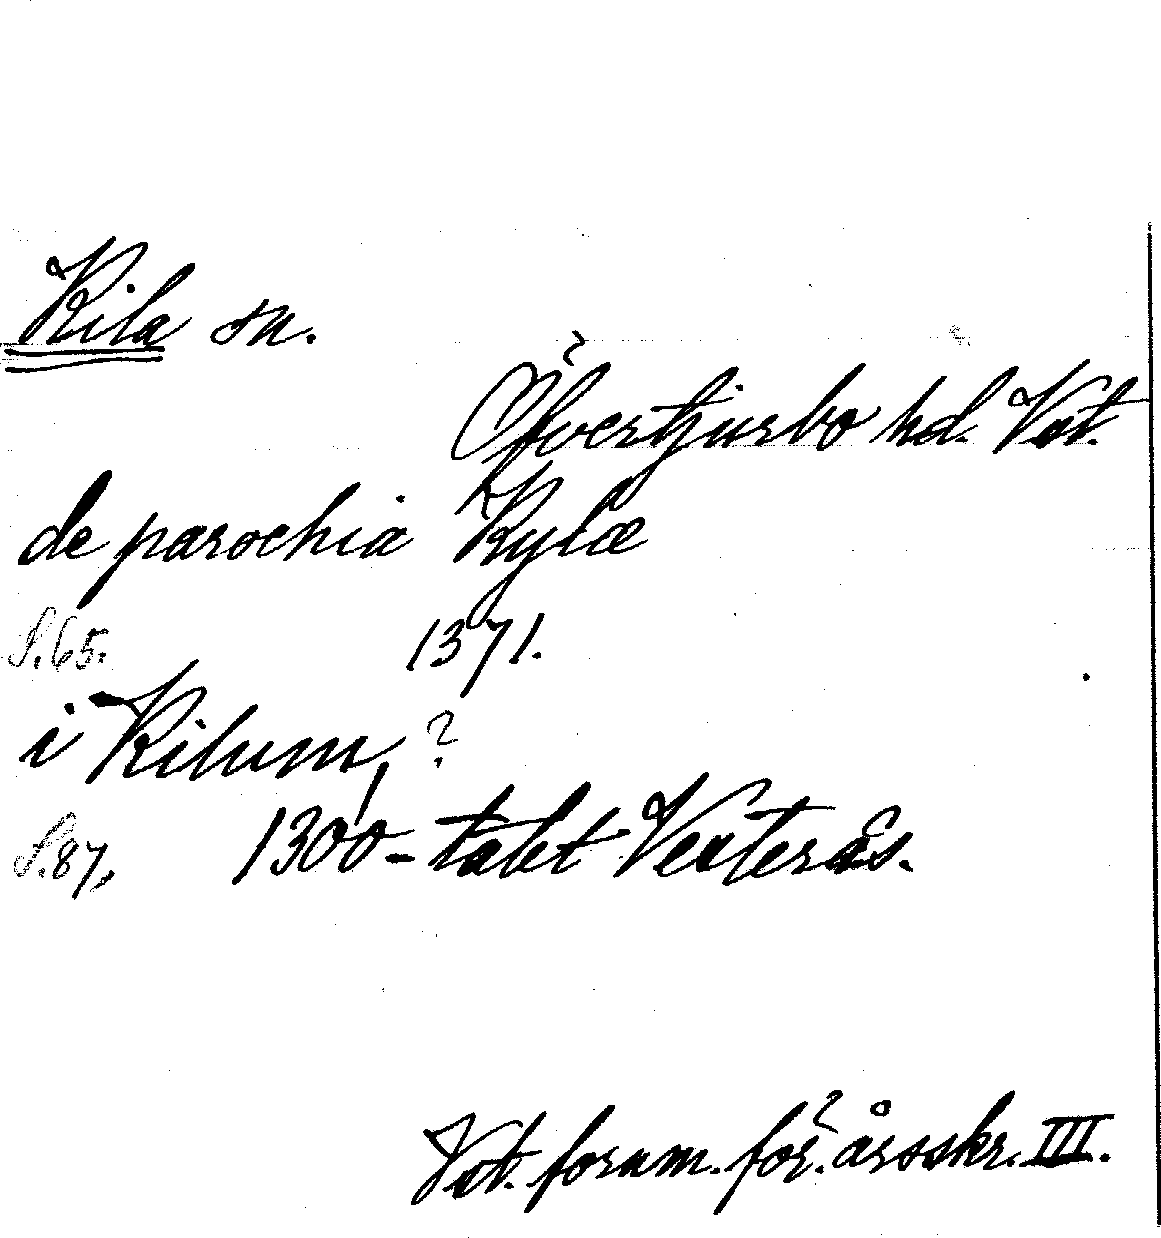 Kila sn.
Öfvertjurbo hd. Vst.
de parochia Kylæ
S.65. 1371.
i Kilum, ?
S.87, 1300-talet Vesterås.
Vst. fornm. för. årsskr. III.